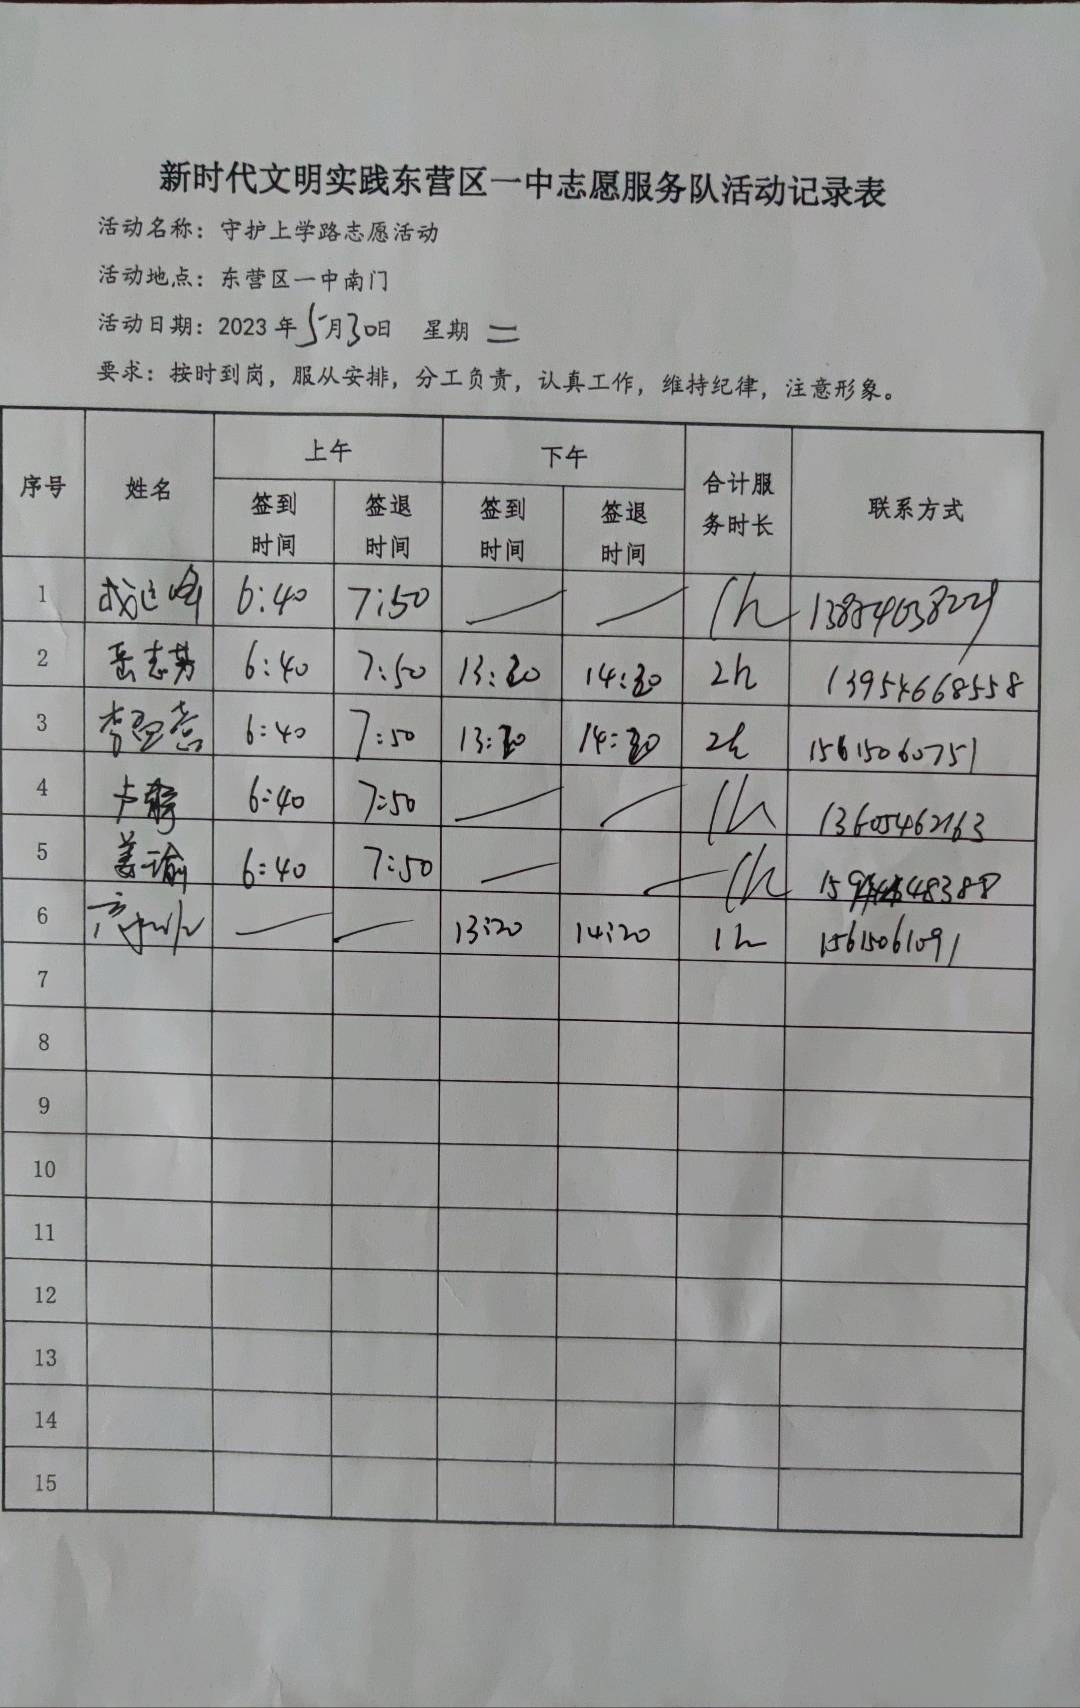 新时代文明实践东营区一中志愿服务队活动记录表
活动名称：守护上学路志愿活动
活动地点：东营区一中南门
活动日期：2023年5月30日 星期二
要求：按时到岗，服从安排，分工负责，认真工作，维持纪律，注意形象。
序号 姓名 上午 下午 合计服务时长 联系方式
签到时间 签退时间 签到时间 签退时间
1 6:40 7:50 1h
2 6:40 7:50 2h 13954668558
3 6:40 7:50 2h 15615060751
4 6:40 7:50 1h 13605462163
5 姜瑜 6:40 7:50 1h
6 13:20 14:20 1h 15615061091
7
8
9
10
11
12
13
14
15